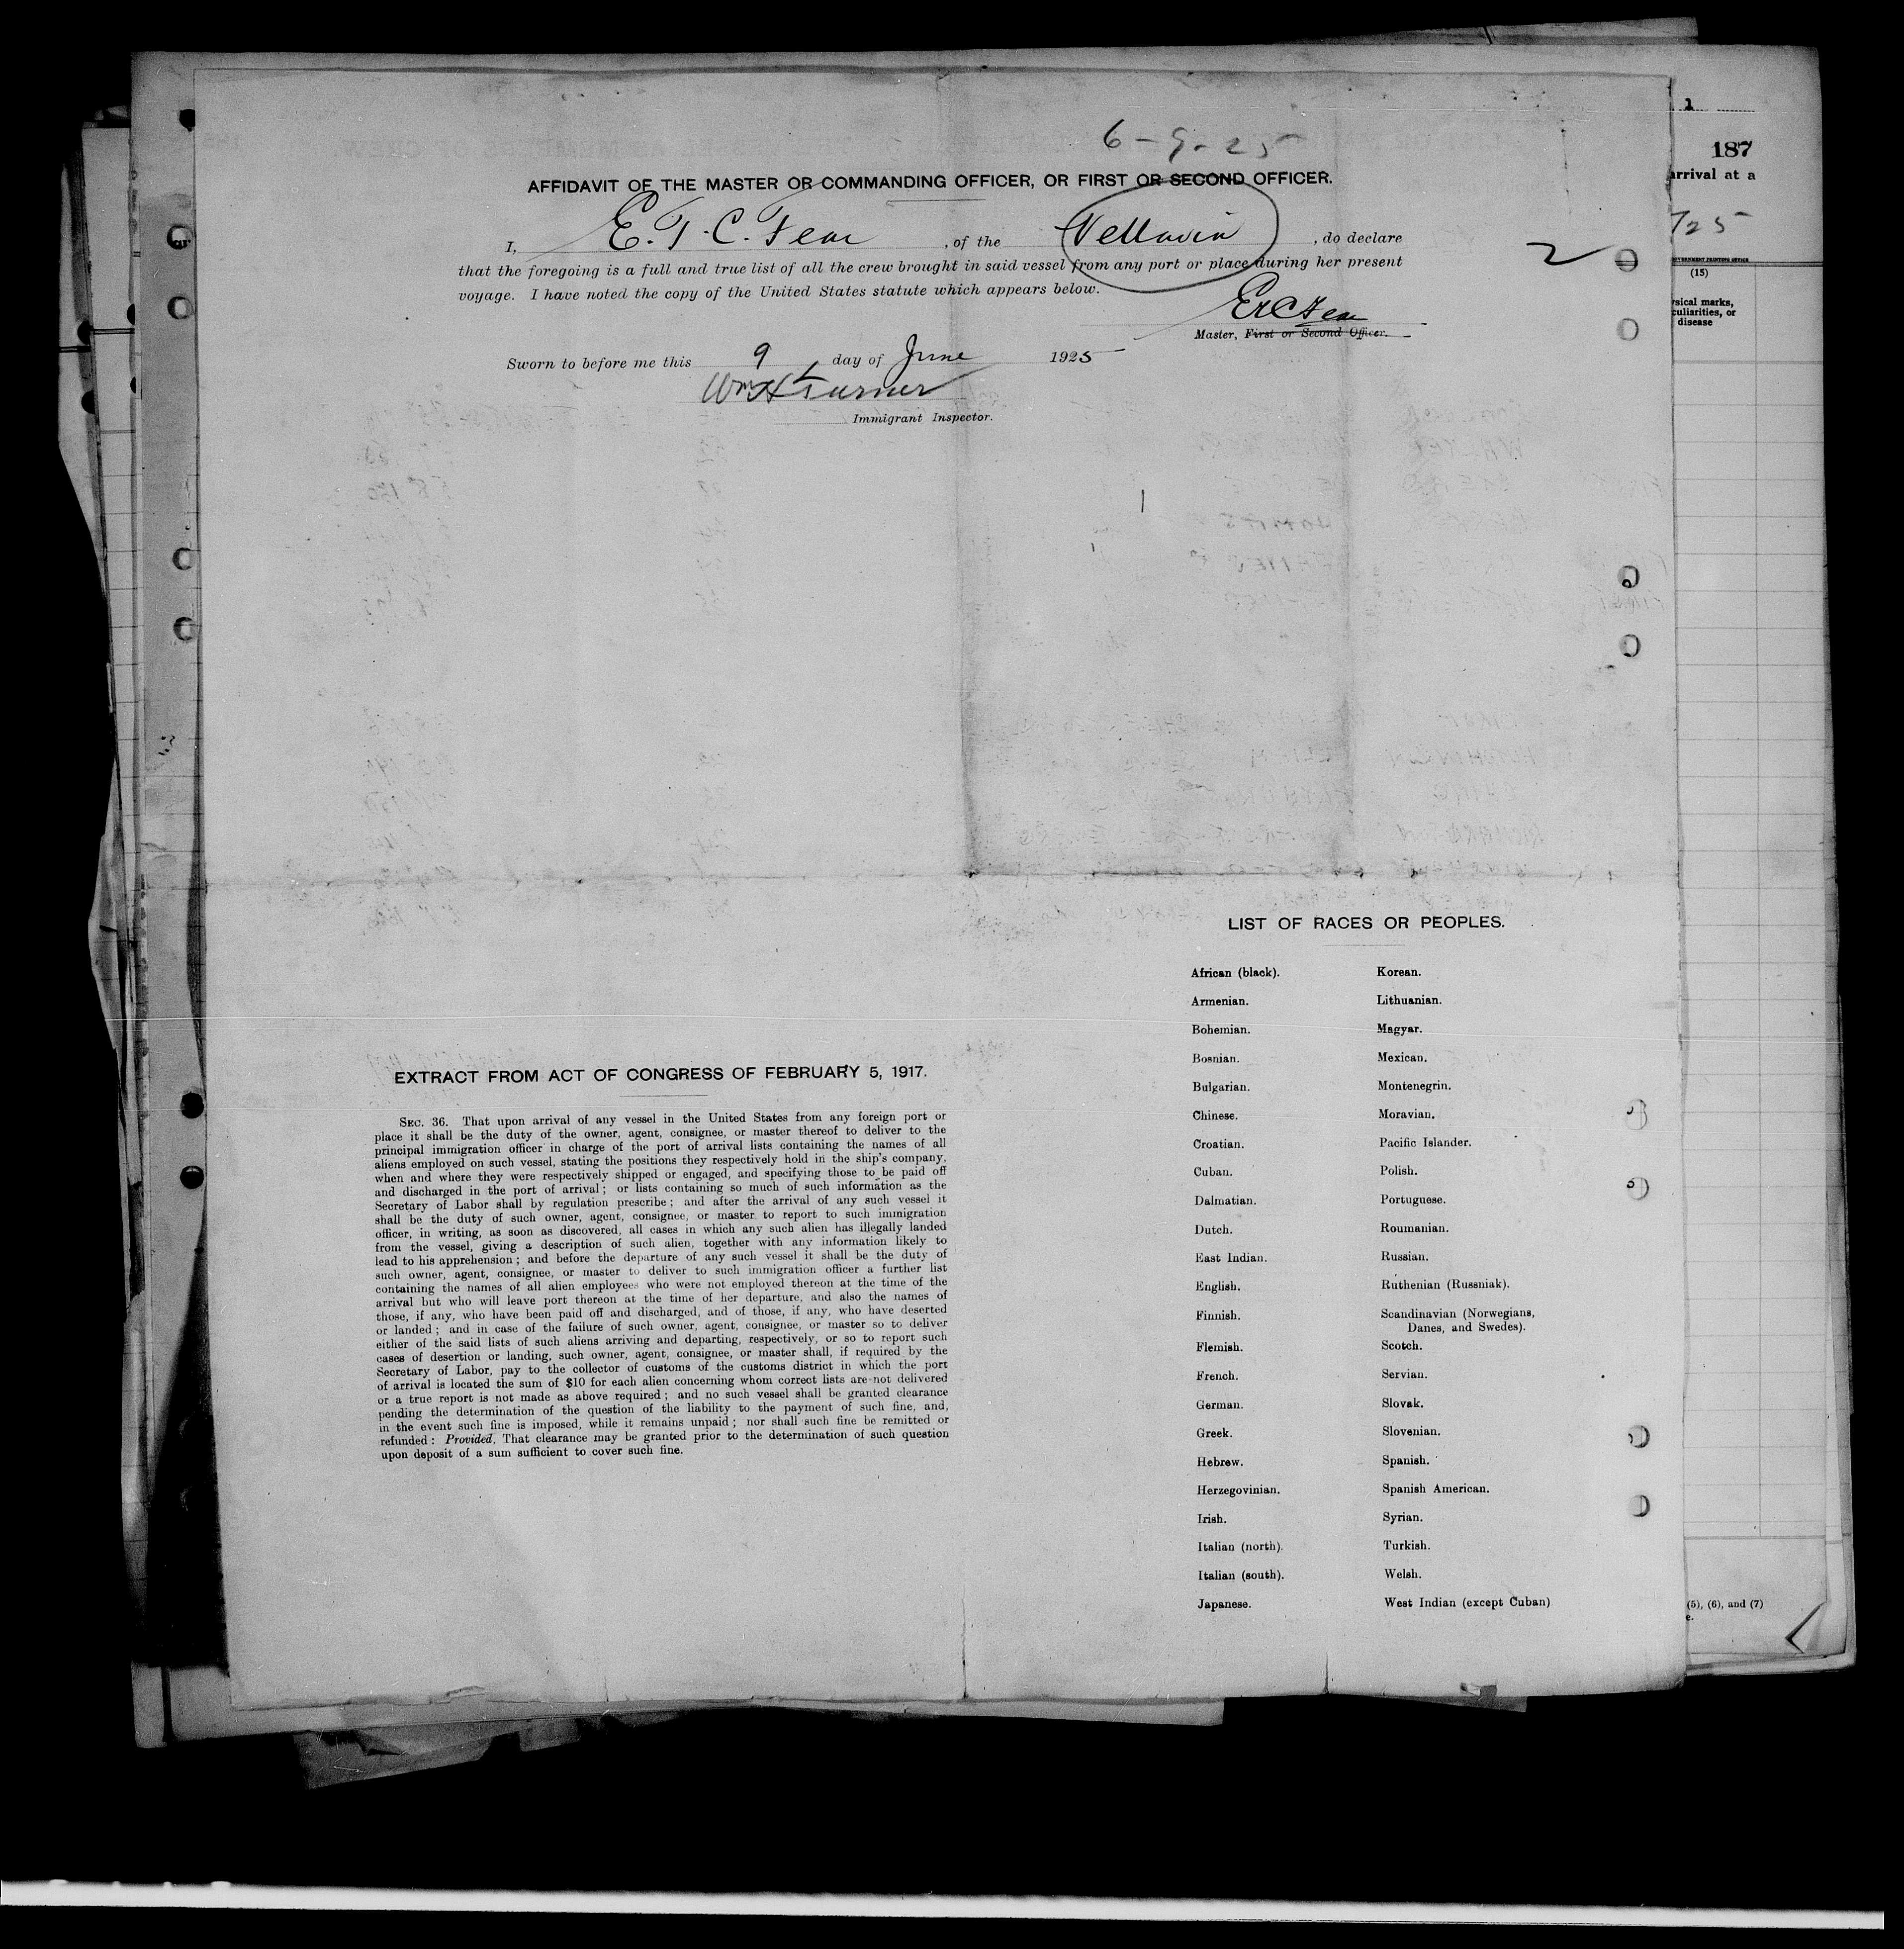 6-9-25
AFFIDAVIT OF THE MASTER OR COMMANDING OFFICER, OR FIRST OR SECOND OFFICER.
I, E. T. C. Fear, of the Vellavia, do declare
that the foregoing is a full and true list of all the crew brought in said vessel from any port or place during her present
voyage. I have noted the copy of the United States statute which appears below.
2
Master, First or Second Officer.
Sworn to before me this 9 day of June 1925
Wm H Turner
Immigrant Inspector.
LIST OF RACES OR PEOPLES.
African (black).
Armenian.
Bohemian.
Bosnian.
Bulgarian.
Chinese.
Croatian.
Cuban.
Dalmatian.
Dutch.
East Indian.
English.
Finnish.
Flemish.
French.
German.
Greek.
Hebrew.
Herzegovinian.
Irish.
Italian (north).
Italian (south).
Japanese.
Korean.
Lithuanian.
Magyar.
Mexican.
Montenegrin.
Moravian.
Pacific Islander.
Polish.
Portuguese.
Roumanian.
Russian.
Ruthenian (Russniak).
Scandinavian (Norwegians,
Danes, and Swedes).
Scotch.
Servian.
Slovak.
Slovenian.
Spanish.
Spanish American.
Syrian.
Turkish.
Welsh.
West Indian (except Cuban)
EXTRACT FROM ACT OF CONGRESS OF FEBRUARY 5, 1917.
SEC. 36. That upon arrival of any vessel in the United States from any foreign port or
place it shall be the duty of the owner, agent, consignee, or master thereof to deliver to the
principal immigration officer in charge of the port of arrival lists containing the names of all
aliens employed on such vessel, stating the positions they respectively hold in the ship's company,
when and where they were respectively shipped or engaged, and specifying those to be paid off
and discharged in the port of arrival; or lists containing so much of such information as the
Secretary of Labor shall by regulation prescribe; and after the arrival of any such vessel it
shall be the duty of such owner, agent, consignee, or master to report to such immigration
officer, in writing, as soon as discovered, all cases in which any such alien has illegally landed
from the vessel, giving a description of such alien, together with any information likely to
lead to his apprehension; and before the departure of any such vessel it shall be the duty of
such owner, agent, consignee, or master to deliver to such immigration officer a further list
containing the names of all alien employees who were not employed thereon at the time of the
arrival but who will leave port thereon at the time of her departure, and also the names of
those, if any, who have been paid off and discharged, and of those, if any, who have deserted
or landed; and in case of the failure of such owner, agent, consignee, or master so to deliver
either of the said lists of such aliens arriving and departing, respectively, or so to report such
cases of desertion or landing, such owner, agent, consignee, or master shall, if required by the
Secretary of Labor, pay to the collector of customs of the customs district in which the port
of arrival is located the sum of $10 for each alien concerning whom correct lists are not delivered
or a true report is not made as above required; and no such vessel shall be granted clearance
pending the determination of the question of the liability to the payment of such fine, and,
in the event such fine is imposed, while it remains unpaid; nor shall such fine be remitted or
refunded: Provided, That clearance may be granted prior to the determination of such question
upon deposit of a sum sufficient to cover such fine.
1
187
arrival at a
(15)
(5), (6), and (7)